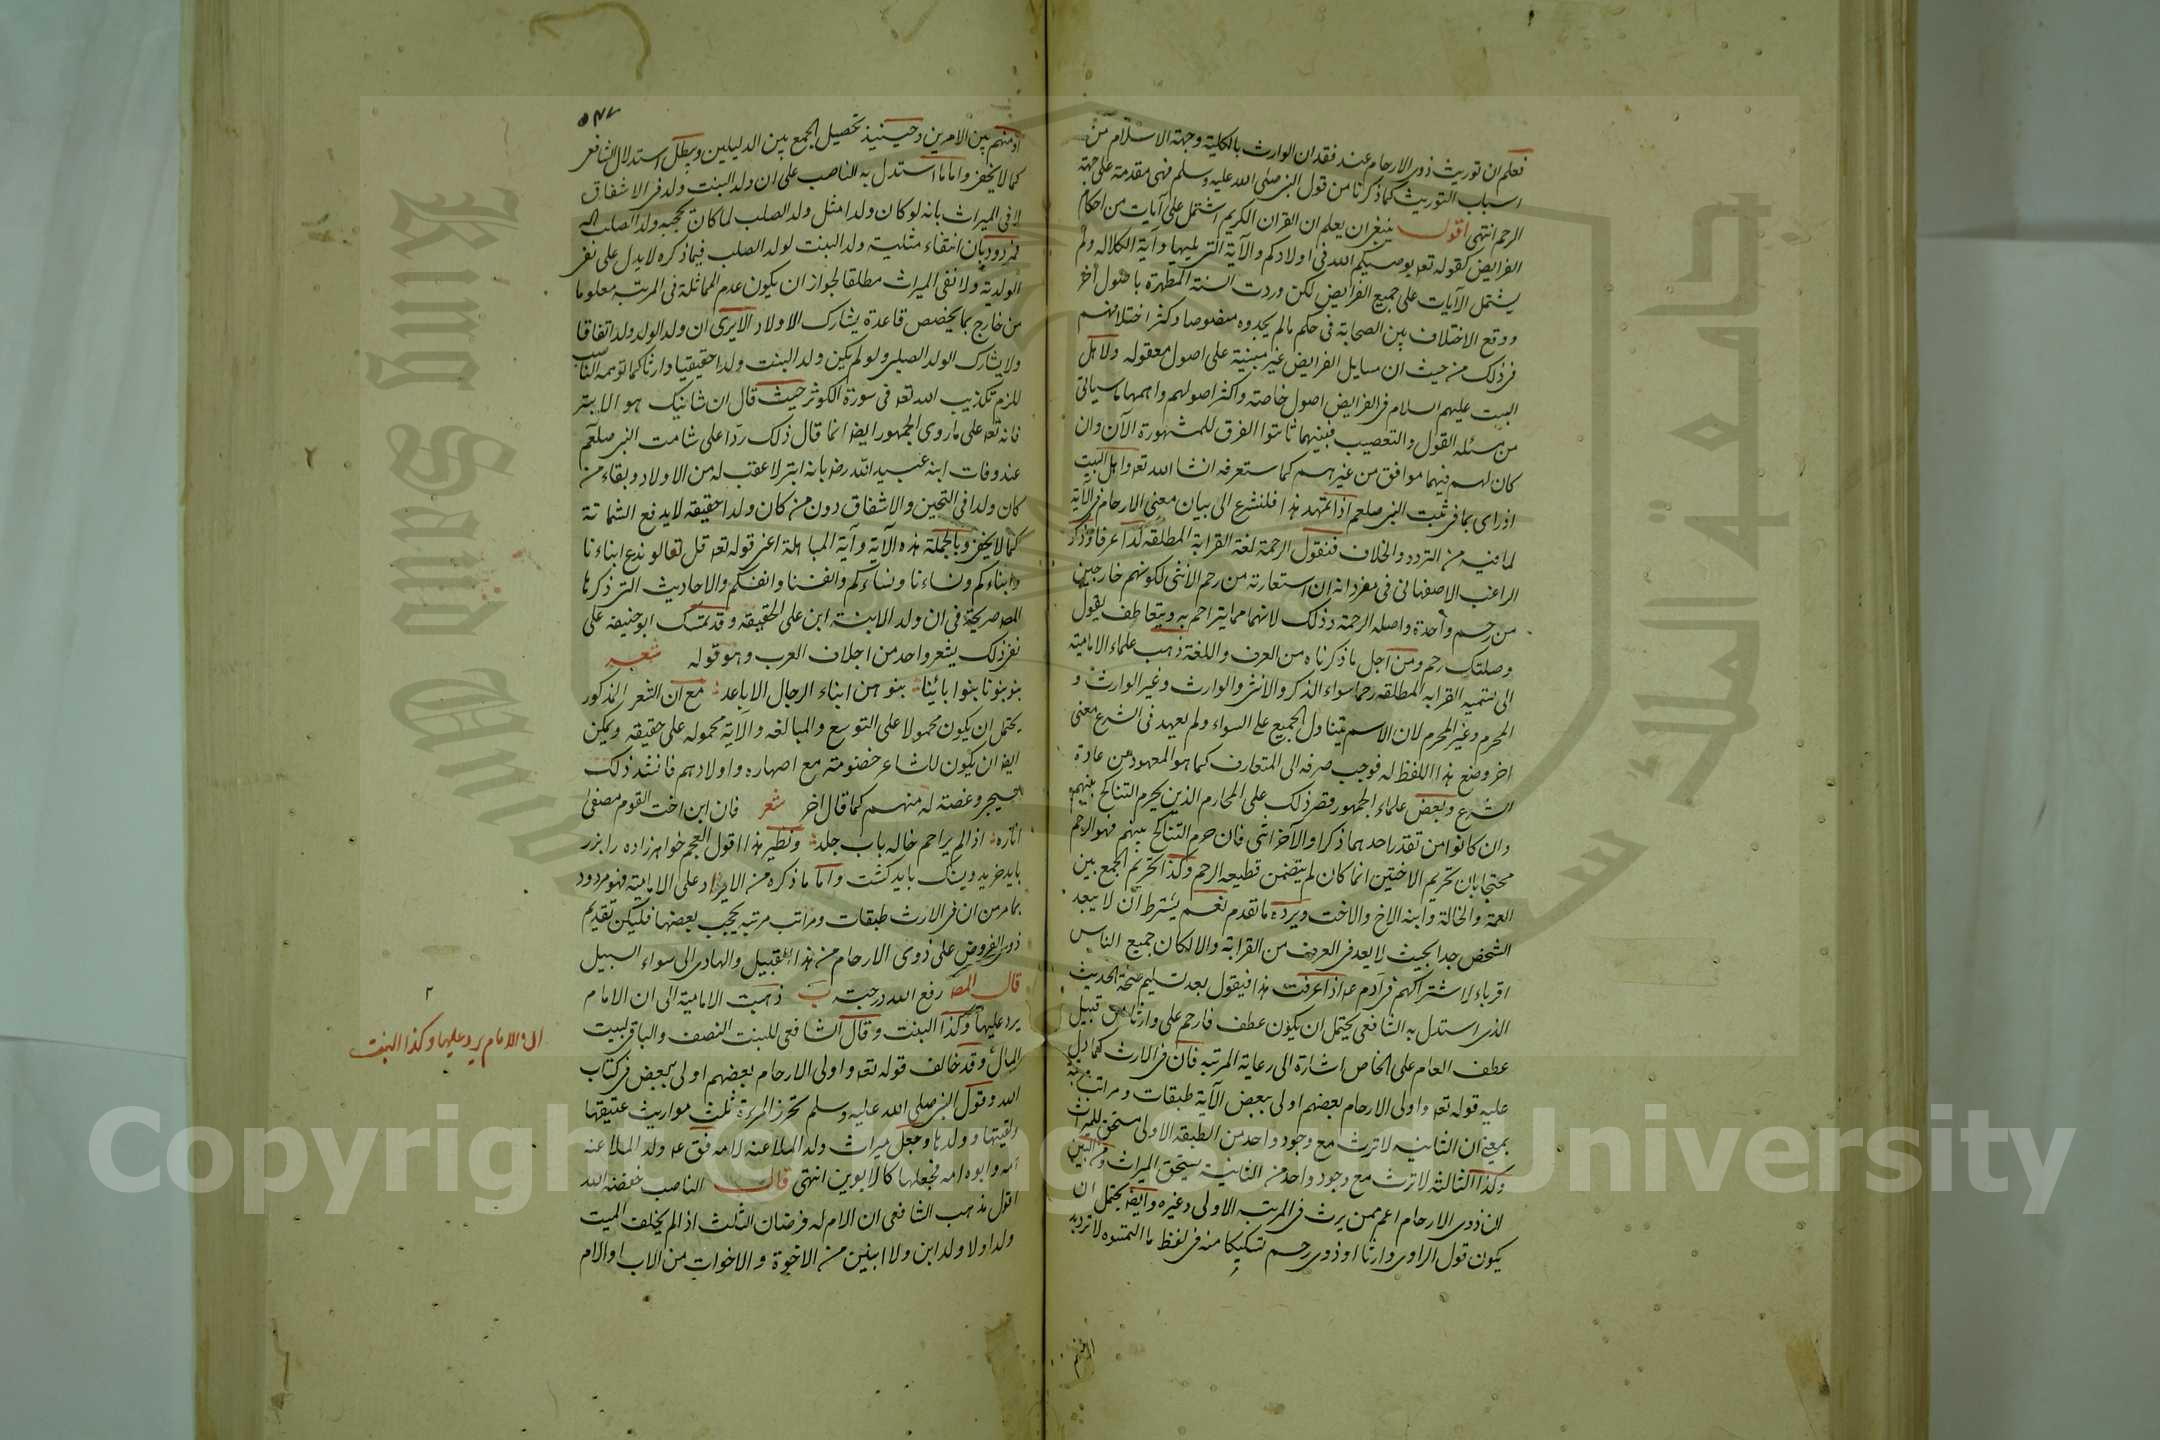 فعلم ان توريث ذوى الارحام عند فقدان الوارث بالكلية وجهة الاسلام من
اسباب التوريث كما ذكرنا من قول النبى صلى الله عليه وسلم فهى مقدمة على جهة
الرحم انتهى اقول ينبغى ان يعلم ان القران الكريم اشتمل على آيات من احكام
الفرايض كقوله تعه يوصيكم الله فى اولادكم والآية التى يليها وآية الكلاله ولم
يشتمل الآيات على جميع الفرايض لكن وردت السنة المطهرة باصول أخر
ووقع الاختلاف بين الصحابة فى حكم مالم يجدوه منصوصا وكثر اختلافهم
فى ذلك من حيث ان مسايل الفرايض غير مبنية على اصول معقوله ولاهل
البيت عليهم السلام فى الفرايض اصول خاصته واكثر اصولهم واهمها ما سياتى
من مسئله العول والتعصيب فبينهما ثابتوا الفرق للمشهورة الآن وان
كان لهم فيهما موافق من غيرهم كما ستعرفه انشا الله تعه واهل البيت
ادرى بما فى بيت النبى صلعم اذا تمهد هذا فلنشرع الى بيان معنى الارحام فى الآية
لما فيه من التردد والخلاف فنقول الرحمة لغة القرابة المطلقه كذا عرفا وذكر
الراغب الاصفهانى فى مفرداته ان استعارته من رحم الانثى لكونهم خارجين
من رحم واحدة واصله الرحمة وذلك لانهما مما يتراحم به ويتعاطف يقول
وصلتك رحم ومن اجل ما ذكرناه من العرف واللغة ذهب علماء الامامية
الى تسميه القرابه المطلقه رحما سواء الذكر والانثى والوارث وغير الوارث و
المحرم وغير المحرم لان الاسم يتناول الجميع على السواء ولم يعهد فى الشرع معنى
اخر وضع هذا اللفظ له فوجب صرفه الى المتعارف كما هو المعهود من عادة
الشرع وبعض علماء الجمهور قصر ذلك على المحارم الذين يحرم التناكح بينهم
وان كانوا من تقدر احدهما ذكرا والآخر انثى فان حرم التناكح بينهم فهو الرحم
محتجا بان تحريم الاختين انما كان لم يتضمن قطيعه الرحم وكذا تحريم الجمع بين
العمة والخالة وابنه الاخ والاخت ويرده ما تقدم نعم يشترط ان لا يبعد
الشخص جدا بحيث لا يعد فى العرف من القرابة والا لكان جميع الناس
اقرباء لاشتراكهم فى آدم عه اذا عرفت هذا فيقول بعد تسليم صحة الحديث
الذى استدل به الشافعى يحتمل ان يكون عطف ذا رحم على وارثا من قبيل
عطف العام على الخاص اشارة الى رعاية المرتبه فان فى الارث كما دل
عليه قوله تعه واولى الارحام بعضهم اولى ببعض الآية طبقات ومراتب مرتبة
بمعنى ان الثانيه لا ترث مع وجود واحد من الطبقه الاولى مستحق للميراث
وكذا الثالثة لا ترث مع وجود واحد من الثانية يستحق الميراث ومن البين
ان ذوى الارحام اعم ممن يرث فى المرتبه الاولى وغيره وايضا يحتمل ان
يكون قول الراوى وارثا او ذوى رحم تشكيكا منه فى لفظ ما التمسوه لا ترديد
او منهم
٥٤٧
او منهم بين الامرين وحينئذ تحصيل الجمع بين الدليلين ويبطل استدلال الشافعى
كما لا يخفى واما ما استدل به الناصب على ان ولد البنت ولد فى الاشفاق
لا فى الميراث بانه لو كان ولدا مثل ولد الصلب لما كان يحجبه ولد الصلب اله
فمردود بان انتفاء مثلية ولد البنت لولد الصلب فيما ذكره لا يدل على نفى
الولدية ولا نفى الميراث مطلقا لجواز ان يكون عدم المماثلة فى المرتبه معلوما
من خارج بما يخصص قاعدة يشارك الاولاد الا يرى ان ولد الولد ولد اتفاقا
ولا يشارك الولد الصلبى ولو لم يكن ولد البنت ولدا حقيقيا وارثا كما توهمه الناصب
للزم تكذيب الله تعه فى سورة الكوثر حيث قال ان شانئك هو الابتر
فانه تعه على ما روى الجمهور ايضا انما قال ذلك ردا على شامت النبى صلعم
عند وفات ابنه عبيد الله رضه بانه ابتر لا عقب له من الاولاد وبقاء من
كان ولدا فى التحين والاشفاق دون من كان ولدا حقيقه لا يدفع الشماتة
كما لا يخفى وبالجملة هذه الآية وآية المباهلة اعنى قوله تعه قل تعالو ندع ابناءنا
وابناءكم ونساءنا ونساءكم وانفسنا وانفسكم والاحاديث التى ذكرها
المصه صريحة فى ان ولد الابنة ابن على الحقيقه وقد تمسك ابو حنيفه على
نفى ذلك بشعر واحد من اجلاف العرب وهو قوله شعر
بنو بنونا بنوا بائنا بنوهن ابناء الرجال الاباعد مع ان الشعر المذكور
يحتمل ان يكون محمولا على التوسع والمبالغه والآية محموله على حقيقه ويمكن
ايضا ان يكون للشاعر خصومة مع اصهاره واولادهم فانشد ذلك
وغصته له منهم كما قال اخر شعر فان ابن اخت القوم مصغى
اناؤه اذا لم يزاحم خاله باب جلد ونظير هذا اقول العجم خواهرزاده را بزر
بايد خريد وبسنگ بايد كشت واما ما ذكره من الايراد على الامامية فهو مردود
بما مر من ان فى الارث طبقات ومراتب مرتبه يحجب بعضها فليكن تقديم
ذوى الفروض على ذوى الارحام من هذا القبيل والهادى الى سواء السبيل
قال المصه رفع الله درجته ب ذهبت الامامية الى ان الامام
يرد عليها وكذا البنت وقال الشافعى للبنت النصف والباقى لبيت
المال وقد خالف قوله تعه واولى الارحام بعضهم اولى ببعض فى كتاب
الله وقول النبى صلى الله عليه وسلم تحرز المرءة ثلث مواريث عتيقها
ولقيتها وولدها وجعل ميراث ولد الملاعنه لامه فق عه ولد الملاعنه
امه وابوه امه فجعلها كالابوين انتهى قال الناصب خفضه الله
اقول مذهب الشافعى ان الام له فرضان الثلث اذا لم يخلف الميت
ولدا ولا ولد ابن ولا اثنين من الاخوة والاخوات من الاب او الام
٢
الى الامام يرد عليها وكذا البنت
٢
Copyright © King Saud University
King Saud University
جامعة الملك سعود